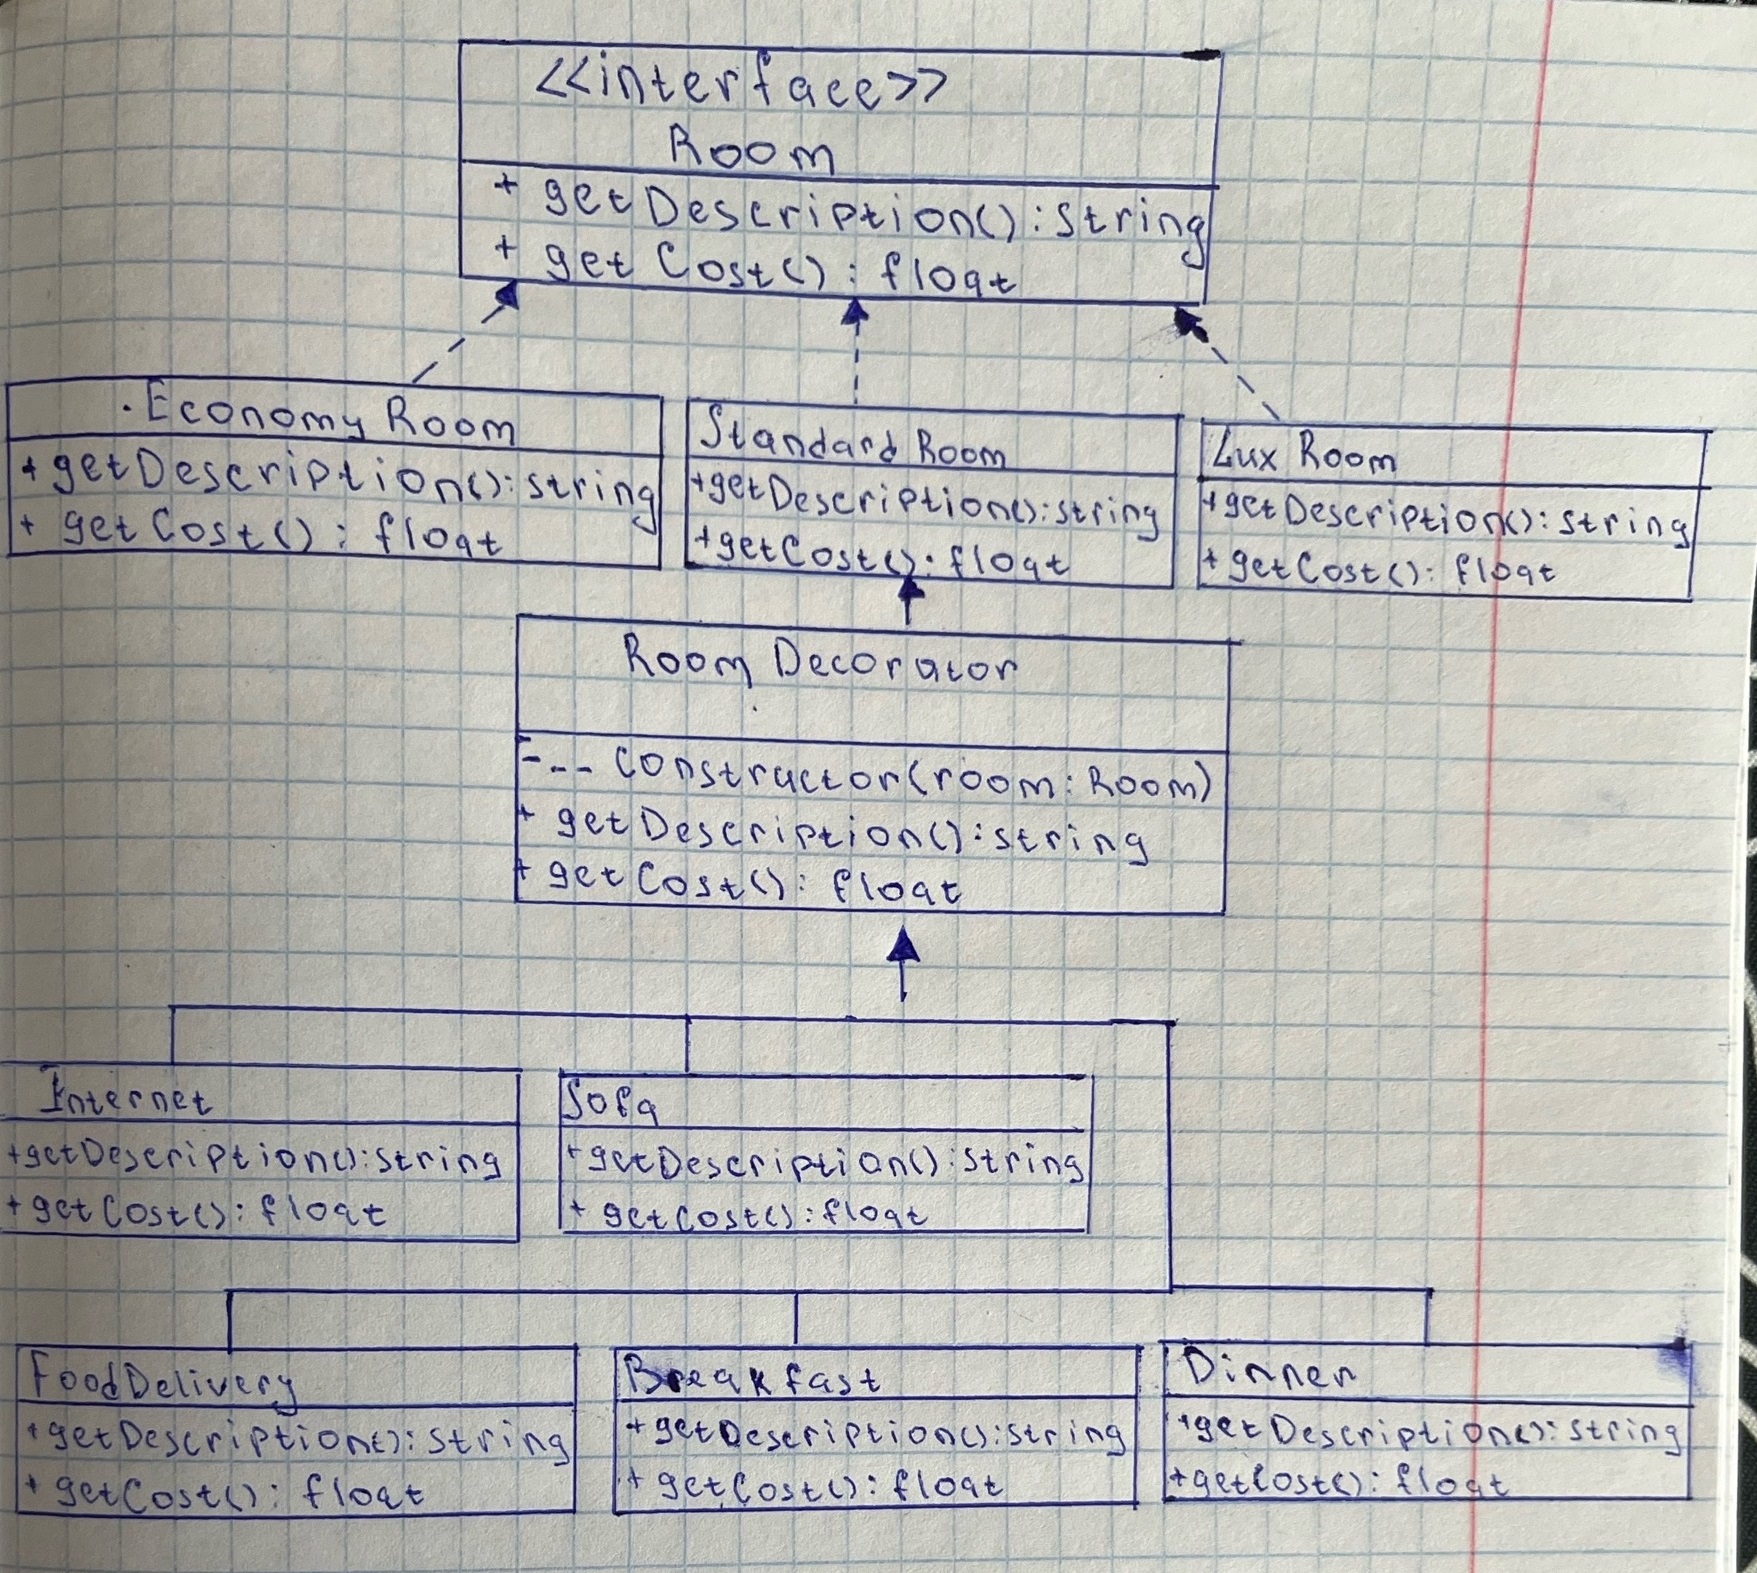 <<interface>>
Room
+ getDescription(): string
+ getCost(): float
Economy Room
+ getDescription(): string
+ getCost(): float
Standard Room
+getDescription(): string
+getCost(): float
Lux Room
+getDescription(): string
+getCost(): float
Room Decorator
--- constructor(room: Room)
+ getDescription(): string
+ getCost(): float
Internet
+getDescription(): string
+getCost(): float
Sofa
+getDescription(): string
+ getCost(): float
FoodDelivery
+getDescription(): string
+ getCost(): float
Breakfast
+getDescription(): string
+ getCost(): float
Dinner
+getDescription(): string
+getCost(): float